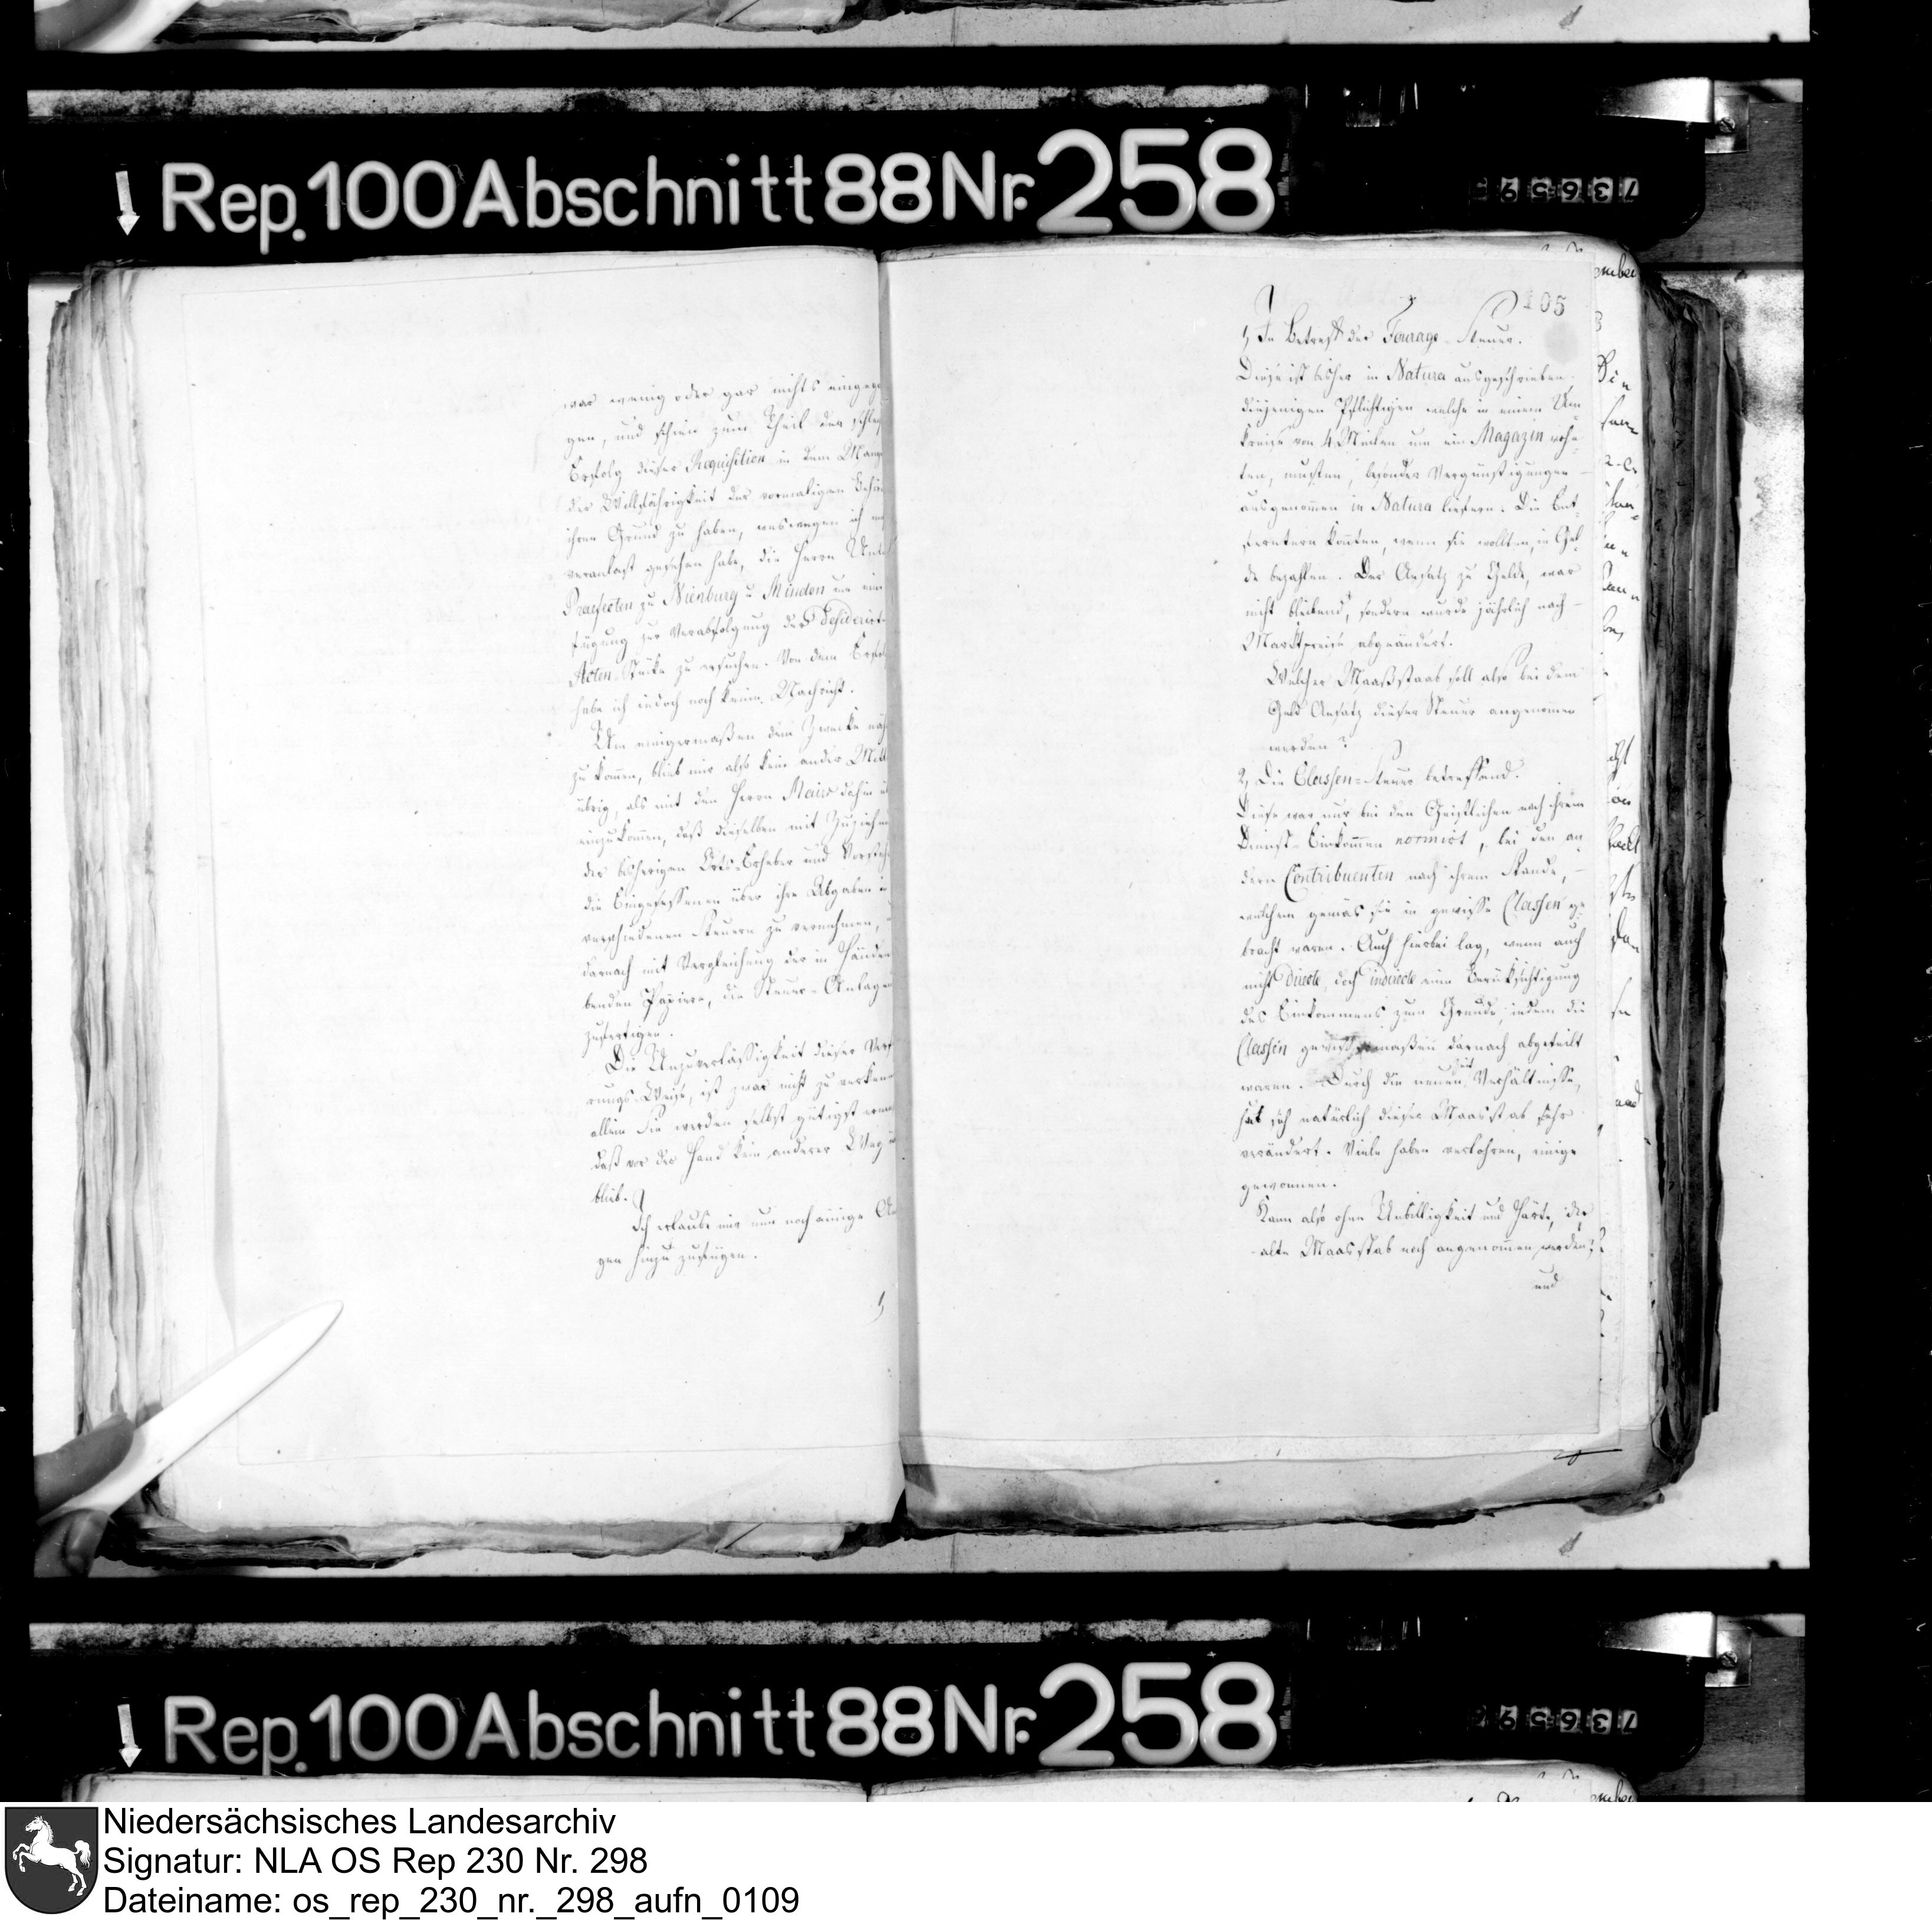 Rep. 100 Abschnitt 88 Nr. 258
736595
war wenig oder gar nichts eingega
gen, und schien zum Theil der schle
Erfolg dieser Requisition in dem Mang
der Willfährigkeit der vormaligen Behör
ihren Grund zu haben, weswegen ich
veranlast gesehen habe, die Herrn Unter
Praefecten zu Nienburg u Minden um eine
fügung zur Verabfolgung der desiderirte
Acten-Stücke zu ersuchen. Von dem Erfol
habe ich iedoch noch keine Nachricht.
Um einigermaßen dem Zwecke näh
zu kommen, blieb mir also kein ander Mitt
übrig, als mit den Herrn Mairs dahin
einzukommen, daß dieselben mit Zuziehun
der bisherigen Orts-Erheber und Vorsteh
die Eingesessenen über ihre Abgaben
verschiedenen Steuern zu vernehmen,
darnach mit Vergleichung der in Händen
benden Papiere, die Steuer-Anlagen
zufertigen.
Die Unzuverlässigkeit dieser Verf
rungs-Weise, ist zwar nicht zu verkenn
allein Sie werden selbst gütigst erme
daß vor der Hand kein anderer Weg
blieb.
Ich erlaube mir nun noch einige
gen hinzu zufügen.
1,
105
1, In Betreff der Fourage-Steuer.
Diese ist bisher in Natura ausgeschrieben,
diejenigen Pflichtigen welche in einem Um-
kreise von 4 Meilen um ein Magazin wohn-
ten, mußten, besondre Vergünstigungen
ausgenommen in Natura liefern. Die Ent-
fernteren konten, wenn sie wollten, in Gel-
de bezahlen. Der Ansatz zu Gelde, war
nicht bleibend, sondern wurde jährlich nach
Marktpreise abgeändert.
Welcher Maaßstaab soll also bei dem
Geld Ansatz dieser Steuer angenommen
werden?
2, Die Classen-Steuer betreffend.
Diese war nur bei den Geistlichen nach ihrem
Dienst-Einkommen normirt, bei den an
dern Contribuenten nach ihrem Stande,
welchem gemäs sie in gewisse Classen ge
bracht waren. Auch hierbei lag, wenn auch
nicht directe, doch indirecte eine Berücksichtigung
des Einkommens zum Grunde, indem die
Classen gewissermaßen darnach abgeteilt
waren. Durch die neuen Zeit Verhältnisse,
hat sich natürlich dieser Maasstab sehr
verändert. Viele haben verlohren, einige
gewonnen.
Kann also ohne Unbilligkeit und Härte, der
alte Maasstab noch angenommen werden?
und
Rep. 100 Abschnitt 88 Nr. 258
Niedersächsisches Landesarchiv
Signatur: NLA OS Rep 230 Nr. 298
Dateiname: os_rep_230_nr._298_aufn_0109